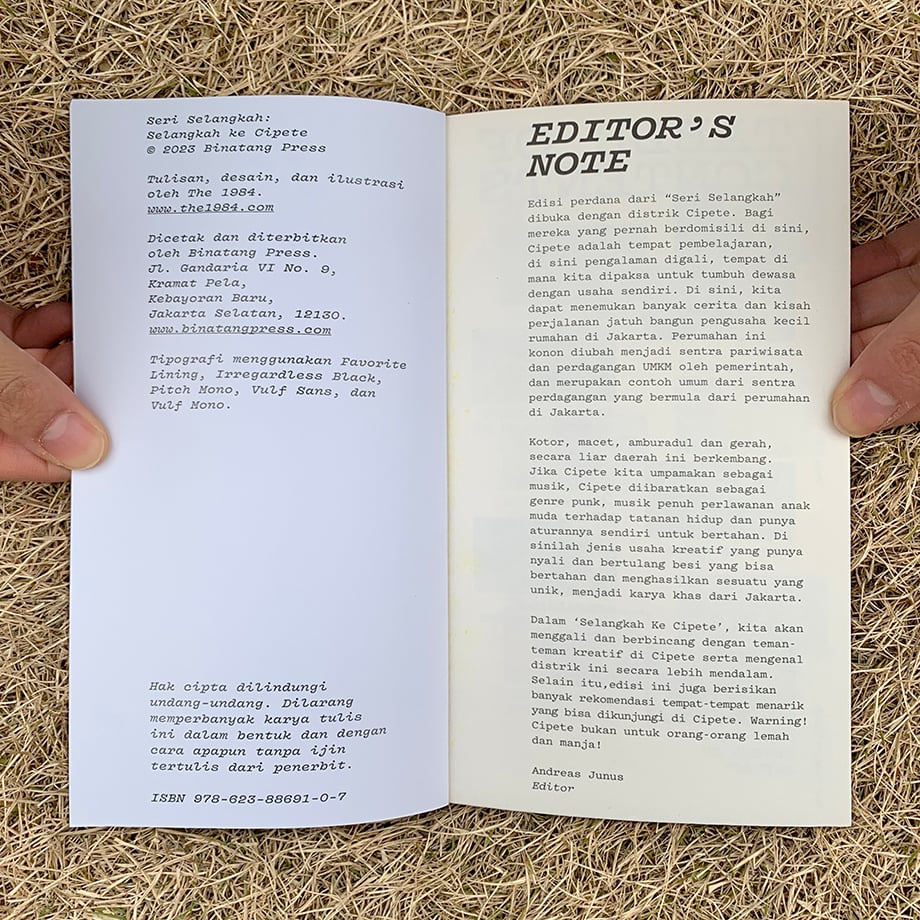 Seri Selangkah:
Selangkah ke Cipete
© 2023 Binatang Press
Tulisan, desain, dan ilustrasi
oleh The 1984.
www.the1984.com
Dicetak dan diterbitkan
oleh Binatang Press.
Jl. Gandaria VI No. 9,
Kramat Pela,
Kebayoran Baru,
Jakarta Selatan, 12130.
www.binatangpress.com
Tipografi menggunakan Favorite
Lining, Irregardless Black,
Pitch Mono, Vulf Sans, dan
Vulf Mono.
Hak cipta dilindungi
undang-undang. Dilarang
memperbanyak karya tulis
ini dalam bentuk dan dengan
cara apapun tanpa ijin
tertulis dari penerbit.
ISBN 978-623-88691-0-7
EDITOR'S
NOTE
Edisi perdana dari “Seri Selangkah”
dibuka dengan distrik Cipete. Bagi
mereka yang pernah berdomisili di sini,
Cipete adalah tempat pembelajaran,
di sini pengalaman digali, tempat di
mana kita dipaksa untuk tumbuh dewasa
dengan usaha sendiri. Di sini, kita
dapat menemukan banyak cerita dan kisah
perjalanan jatuh bangun pengusaha kecil
rumahan di Jakarta. Perumahan ini
konon diubah menjadi sentra pariwisata
dan perdagangan UMKM oleh pemerintah,
dan merupakan contoh umum dari sentra
perdagangan yang bermula dari perumahan
di Jakarta.
Kotor, macet, amburadul dan gerah,
secara liar daerah ini berkembang.
Jika Cipete kita umpamakan sebagai
musik, Cipete diibaratkan sebagai
genre punk, musik penuh perlawanan anak
muda terhadap tatanan hidup dan punya
aturannya sendiri untuk bertahan. Di
sinilah jenis usaha kreatif yang punya
nyali dan bertulang besi yang bisa
bertahan dan menghasilkan sesuatu yang
unik, menjadi karya khas dari Jakarta.
Dalam ‘Selangkah Ke Cipete’, kita akan
menggali dan berbincang dengan teman-
teman kreatif di Cipete serta mengenal
distrik ini secara lebih mendalam.
Selain itu,edisi ini juga berisikan
banyak rekomendasi tempat-tempat menarik
yang bisa dikunjungi di Cipete. Warning!
Cipete bukan untuk orang-orang lemah
dan manja!
Andreas Junus
Editor